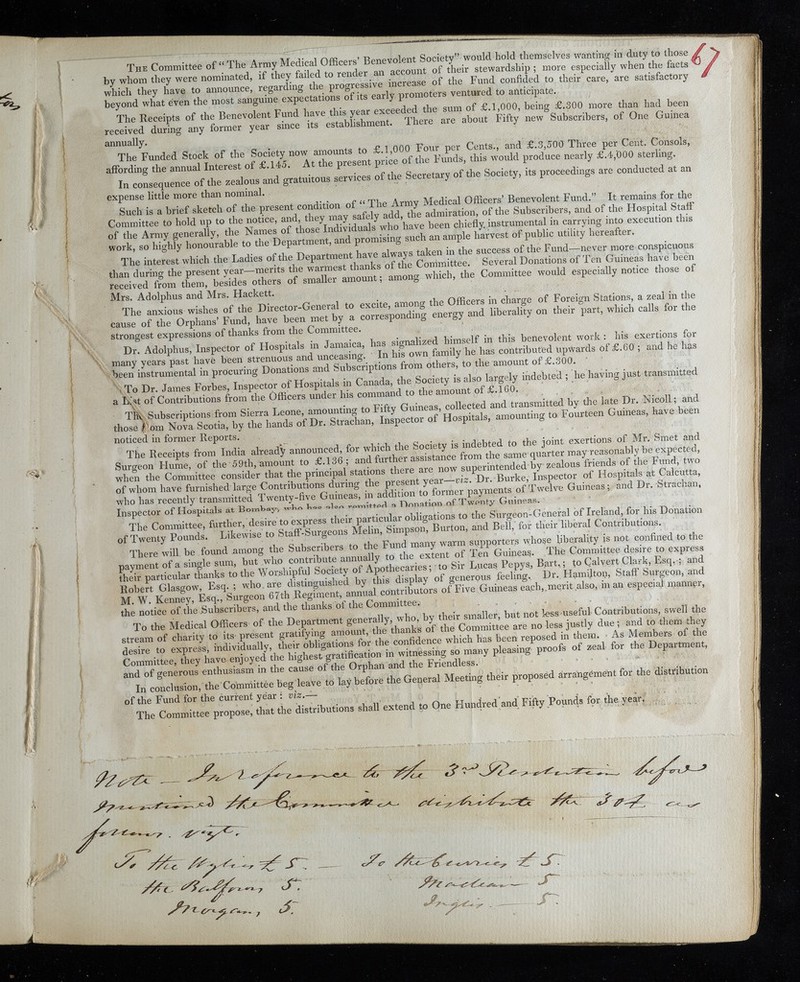 67
THE Committee of "The Army Medical Officers' Benevolent Society" would hold themselves wanting in duty to those
by whom they were nominated, if they failed to render an account of their stewardship; more especially when the facts
which they have to announce, regarding the progressive increase of the Fund confided to their care, are satisfactory
beyond what even the most sanguine expectations of its early promoters ventured to anticipate.
The Receipts of the Benevolent Fund have this year exceeded the sum of £.1,000, being £.300 more than had been
received during any former year since its establishment. There are about Fifty new Subscribers, of One Guinea
annually.
The Funded Stock of the Society now amounts to £.1,000 Four per Cents., and £.3,500 Three per Cent. Consols,
affording the annual Interest of £.145. At the present price of the Funds, this would produce nearly £.4,000 sterling.
In consequence of the zealous and gratuitous services of the Secretary of the Society, its proceedings are conducted at an
expense little more than nominal.
Such is a brief sketch of the present condition of "The Army Medical Officers' Benevolent Fund." It remains for the
Committee to hold up to the notice, and, they may safely add, the admiration, of the Subscribers, and of the Hospital Staff
of the Army generally, the Names of those Individuals who have been chiefly instrumental in carrying into execution this
work, so highly honourable to the Department, and promising such an ample harvest of public utility hereafter.
The interest which the Ladies of the Department have always taken in the success of the Fund—never more conspicuous
than during the present year—merits the warmest thanks of the Committee. Several Donations of Ten Guineas have been
received from them, besides others of smaller amount; among which, the Committee would especially notice those of
Mrs. Adolphus and Mrs. Hackett.
The anxious wishes of the Director-General to excite, among the Officers in charge of Foreign Stations, a zeal in the
cause of the Orphans' Fund, have been met by a corresponding energy and liberality on their part, which calls for the
strongest expressions of thanks from the Committee.
Dr. Adolphus, Inspector of Hospitals in Jamaica, has signalized himself in this benevolent work: his exertions for
many years past have been strenuous and unceasing. In his own family he has contributed upwards of £.60; and he has
been instrumental in procuring Donations and Subscriptions from others, to the amount of £.300.
To Dr. James Forbes, Inspector of Hospitals in Canada, the Society is also largely indebted; he having just transmitted
a List of Contributions from the Officers under his command to the amount of £.160.
The Subscriptions from Sierra Leone, amounting to Fifty Guineas, collected and transmitted by the late Dr. Nicoll; and
those from Nova Scotia, by the hands of Dr. Strachan, Inspector of Hospitals, amounting to Fourteen Guineas, have been
noticed in former Reports.
The Receipts from India already announced, for which the Society is indebted to the joint exertions of Mr. Smet and
Surgeon Hume, of the 59th, amount to £.136; and further assistance from the same quarter may reasonably be expected,
when the Committee consider that the principal stations there are now superintended by zealous friends of the Fund, two
of whom have furnished large Contributions during the present year—viz. Dr. Burke, Inspector of Hospitals at Calcutta,
who has recently transmitted Twenty-five Guineas, in addition to former payments of Twelve Guineas; and Dr. Strachan,
Inspector of Hospitals at Bombay, who has also remitted a Donation of Twenty Guineas.
The Committee, further, desire to express their particular obligations to the Surgeon-General of Ireland, for his Donation
of Twenty Pounds. Likewise to Staff-Surgeons Melin, Simpson, Burton, and Bell, for their liberal Contributions.
There will be found among the Subscribers to the Fund many warm supporters whose liberality is not confined to the
payment of a single sum, but who contribute annually to the extent of Ten Guineas. The Committee desire to express
their particular thanks to the Worshipful Society of Apothecaries; to Sir Lucas Pepys, Bart.; to Calvert Clark, Esq.; and
Robert Glasgow, Esq.; who are distinguished by this display of generous feeling. Dr. Hamilton, Staff Surgeon, and
M. W. Kenney, Esq., Surgeon 67th Regiment, annual contributors of Five Guineas each, merit also, in an especial manner,
the notice of the Subscribers, and the thanks of the Committee.
To the Medical Officers of the Department generally, who, by their smaller, but not less useful Contributions, swell the
stream of charity to its present gratifying amount, the thanks of the Committee are no less justly due; and to them they
desire to express, individually, their obligations for the confidence which has been reposed in them. As Members of the
Committee, they have enjoyed the highest gratification in witnessing so many pleasing proofs of zeal for the Department,
and of generous enthusiasm in the cause of the Orphan and the Friendless.
In conclusion, the Committee beg leave to lay before the General Meeting their proposed arrangement for the distribution
of the Fund for the current year: viz.—
The Committee propose, that the distributions shall extend to One Hundred and Fifty Pounds for the year.
Note — In reference to the 3rd Resolution before
mentioned the Committee distribute the 30£ as
follows. vizt.
To the Wylies £5. — To the Curries £5.
the Balfours 5. Maclean 5
Morgan, 5. Inglis. — 5.